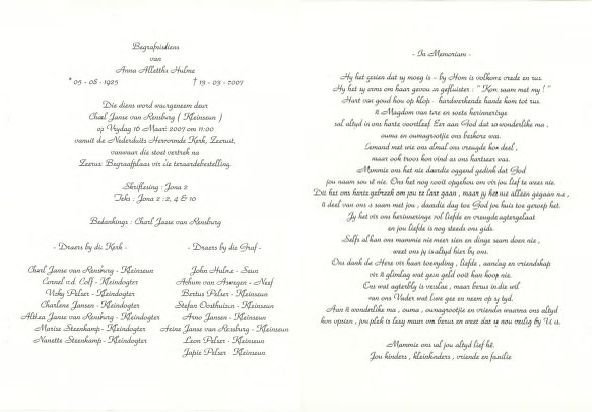 Begrafnisdiens
van
Anna Allettha Hulme
* 05 - 08 - 1925 † 13 - 03 - 2007
Die diens word waargeneem deur
Charl Janse van Rensburg ( Kleinseun )
op Vrydag 16 Maart 2007 om 11:00
vanuit die Nederduits Hervormde Kerk, Zeerust,
vanwaar die stoet vertrek na
Zeerust Begraafplaas vir die teraardebestelling.
Skriflesing : Jona 2
Teks : Jona 2 : 2, 4 & 10
Bedankings : Charl Janse van Rensburg
- Draers by die Kerk -
Charl Janse van Rensburg - Kleinseun
Cornel v.d. Colf - Kleindogter
Vicky Pelser - Kleindogter
Charlene Jansen - Kleindogter
Althea Janse van Rensburg - Kleindogter
Marisa Steenkamp - Kleindogter
Nanette Steenkamp - Kleindogter
- Draers by die Graf -
John Hulme - Seun
Achim van Aswegen - Neef
Bertus Pelser - Kleinseun
Stefan Oosthuizen - Kleinseun
Arno Jansen - Kleinseun
Heine Janse van Rensburg - Kleinseun
Leon Pelser - Kleinseun
Japie Pelser - Kleinseun
- In Memoriam -
Hy het gesien dat sy moeg is - by Hom is volkome vrede en rus.
Hy het sy arms om haar gevou en gefluister : " Kom saam met my ! "
Hart van goud hou op klop - hardwerkende hande kom tot rus.
'n Magdom van ware en soete herinneringe
sal altyd in ons harte voortleef. Eer aan God dat so wonderlike ma ,
ouma en oumagrootjie ons beskore was.
Iemand met wie ons almal ons vreugde kon deel ,
maar ook troos kon vind as ons hartseer was.
Mammie ons het nie daardie oggend gedink dat God
jou naam sou sê nie. Ons het nog nooit opgehou om vir jou lief te wees nie.
Dit het ons harte gebreek om jou te laat gaan , maar jy het nie alleen gegaan nie ,
'n deel van ons is saam met jou , daardie dag toe God jou huis toe geroep het.
Jy het vir ons herinneringe vol liefde en vreugde agtergelaat
en jou liefde is nog steeds ons gids.
Selfs al kan ons mammie nie meer sien en dinge saam doen nie ,
weet ons jy is altyd hier by ons.
Ons dank die Here vir haar toewyding , liefde , aanslag en vriendskap
vir 'n glimlag wat geen geld ooit kan koop nie.
Ons wat agterbly is verslae , maar berus in die wil
van ons Vader wat Lewe gee en neem op sy tyd.
Aan 'n wonderlike ma , ouma , oumagrootjie en vriendin waarna ons altyd
kon opsien , jou plek is leeg maar ons berus en weet dat sy nou veilig by U is.
Mammie ons sal jou altyd lief hê.
Jou kinders , kleinkinders , vriende en familie